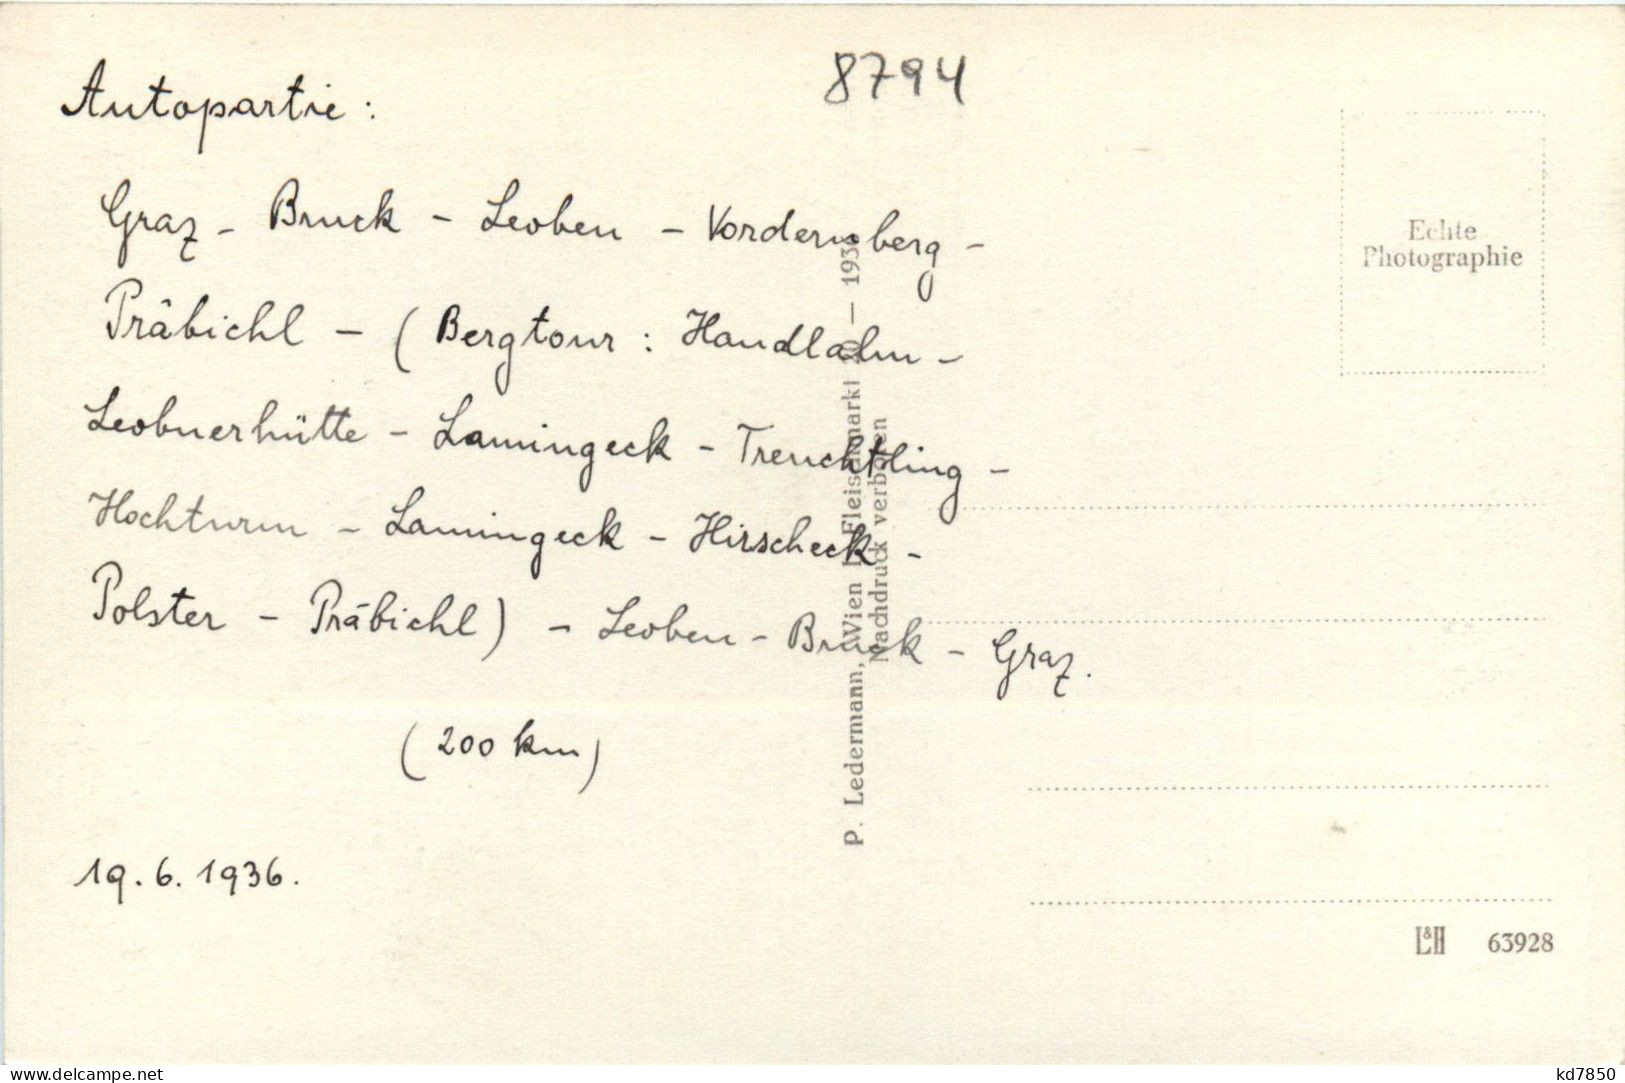 8794
Autopartie:
Graz - Bruck - Leoben - Vordernberg -
Präbichl - (Bergtour: Handlalm -
Leobnerhütte - Lamingeck - Trenchtling -
Hochturm - Lamingeck - Hirscheck -
Polster - Präbichl) - Leoben - Bruck - Graz.
(200 km)
19.6.1936.
P. Ledermann, Wien I., Fleischmarkt
Nachdruck verboten
Echte
Photographie
L&H 63928
www.delcampe.net
kd7850